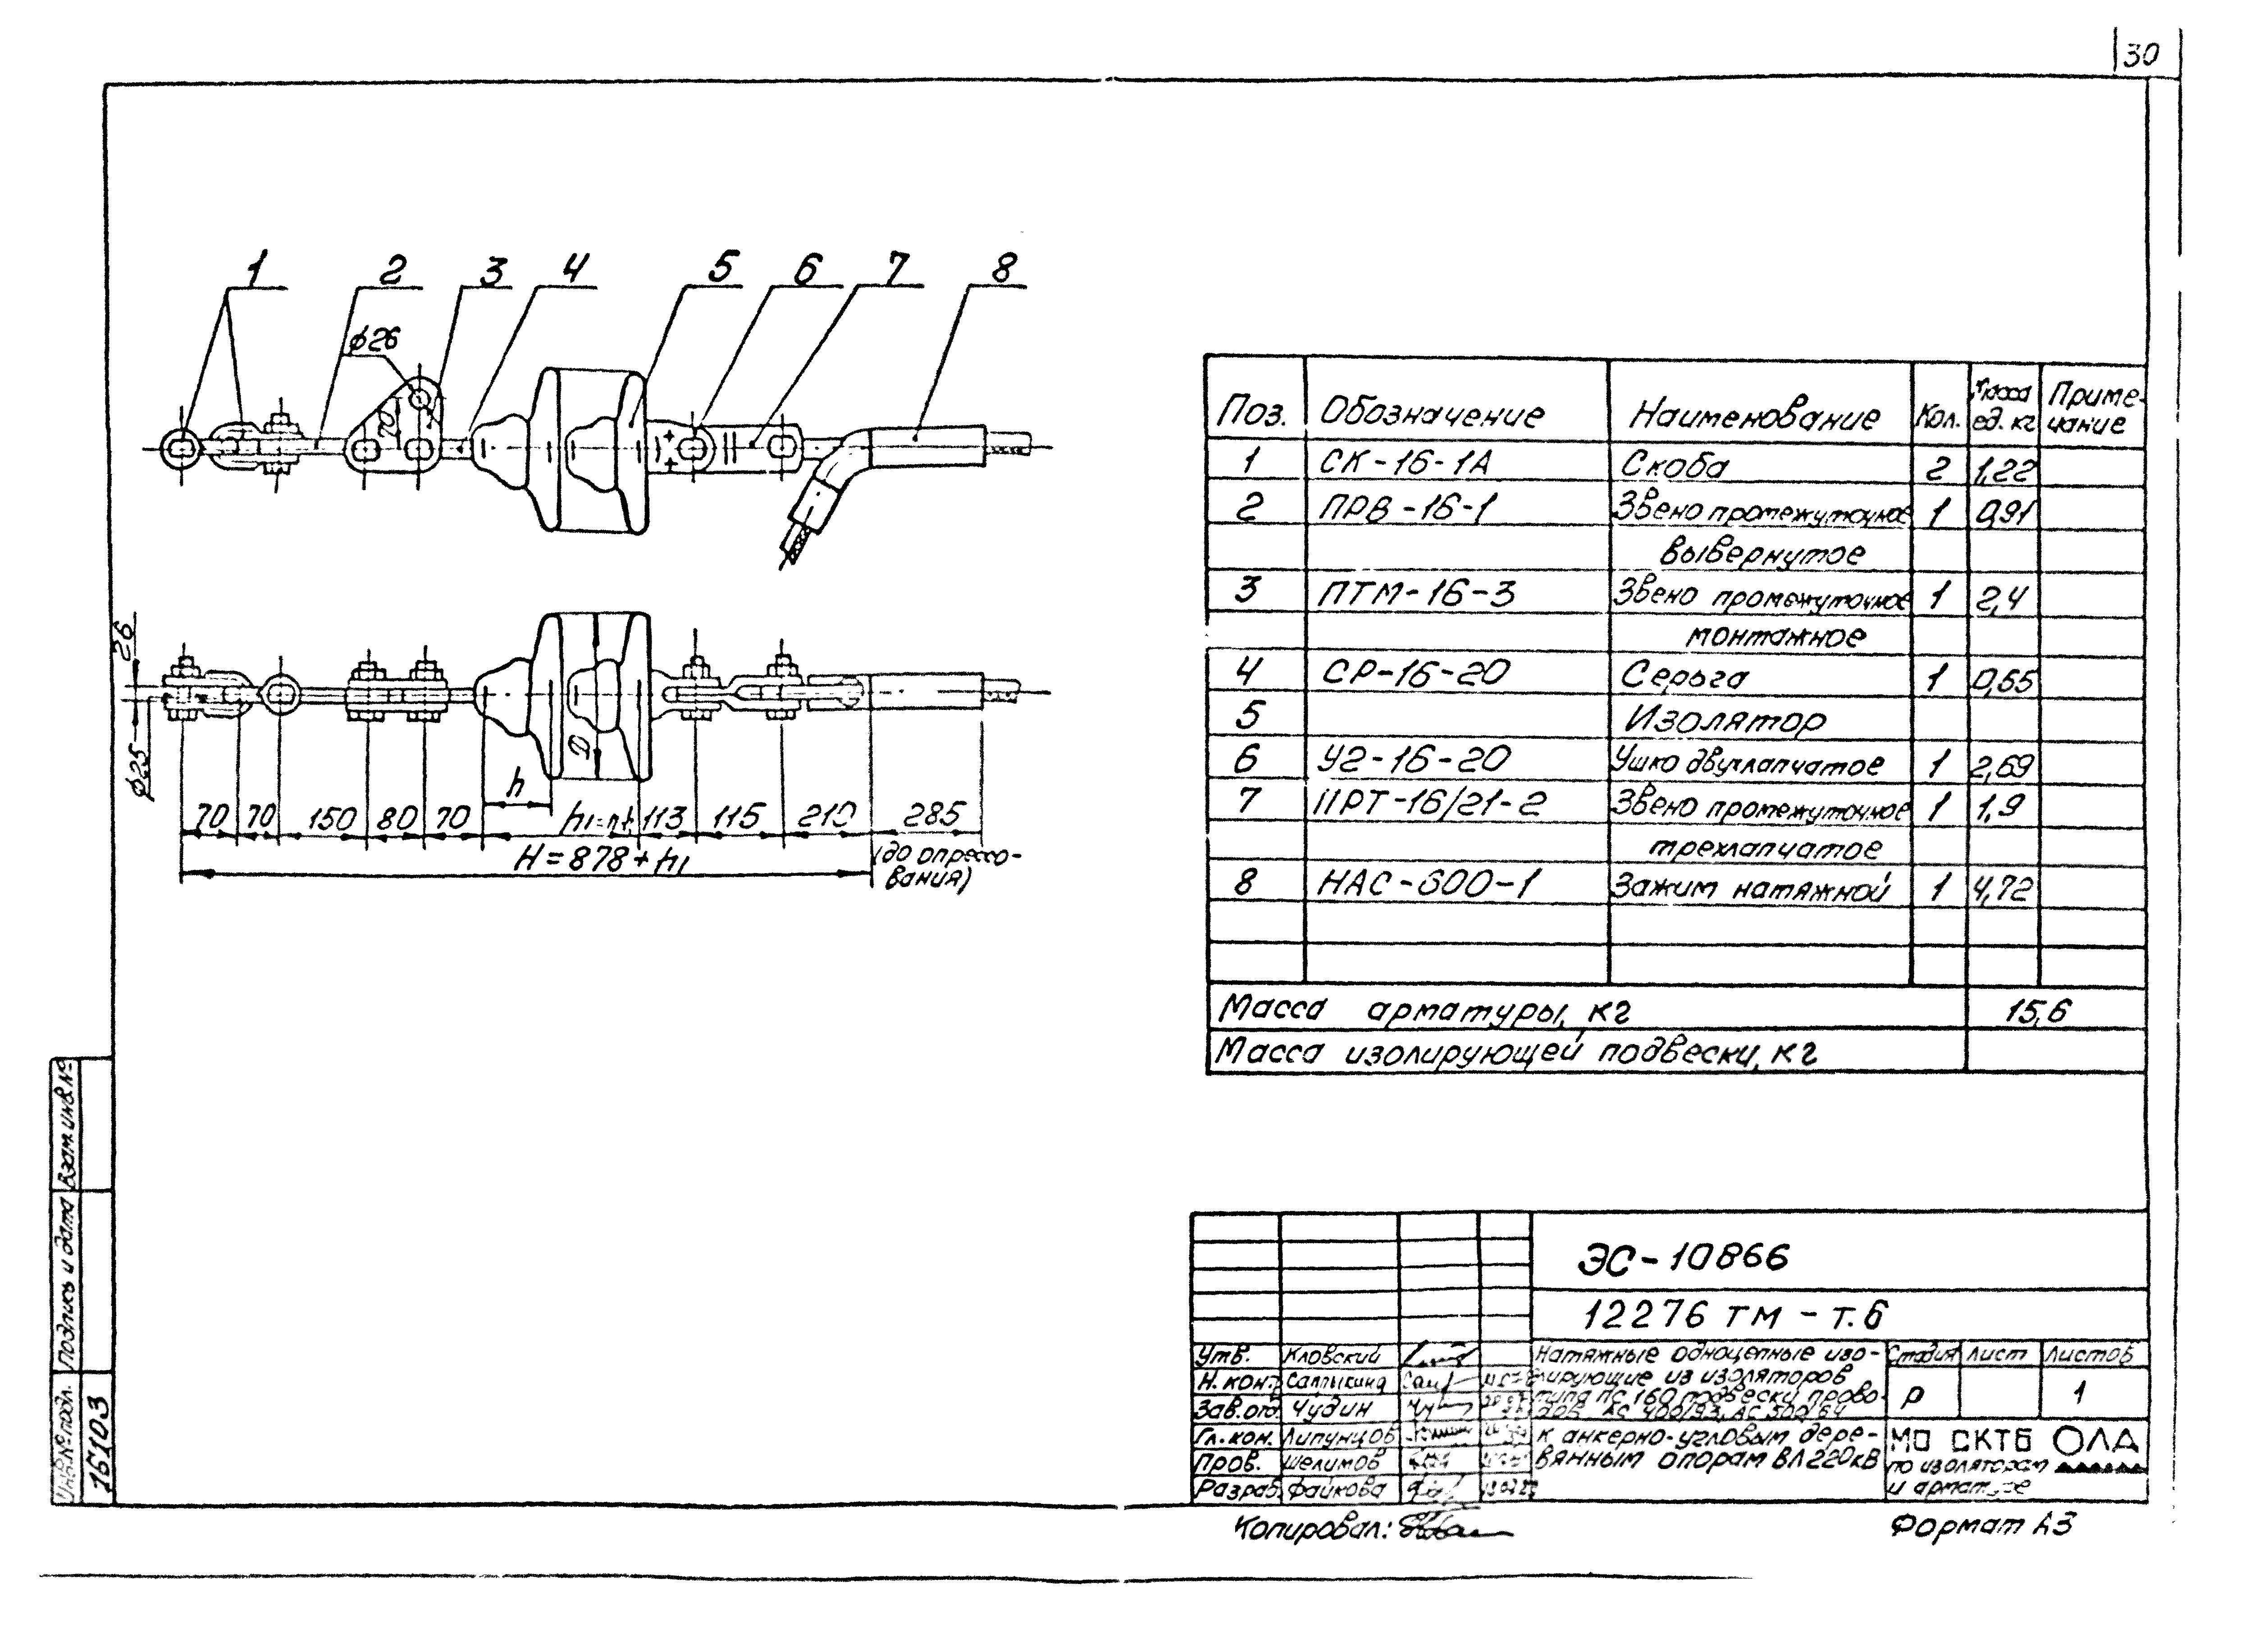 30
1 2 3 4 5 6 7 8
ϕ26
70
26
ϕ25
D
h
70 70 150 80 70 h1=n 113 115 210 285
H = 878 + h1
(до опрессо-
вания)
Поз. Обозначение Наименование Кол. Масса ед. кг Приме-чание
1 СК-16-1А Скоба 2 1,22
2 ПРВ-16-1 Звено промежуточное 1 0,91
вывернутое
3 ПТМ-16-3 Звено промежуточное 1 2,4
монтажное
4 СР-16-20 Серьга 1 0,65
5 Изолятор
6 У2-16-20 Ушко двухлапчатое 1 2,69
7 ПРТ-16/21-2 Звено промежуточное 1 1,9
трехлапчатое
8 НАС-600-1 Зажим натяжной 1 4,72
Масса арматуры, кг 15,6
Масса изолирующей подвески, кг
Взам. инв. №
Подпись и дата
Инв. № подл.
16103
ЭС-10866
12276 тм - т.6
Утв. Кловский
Н. конт. Салтыкина
Зав. отд. Чудин
Гл. кон. Липунцов
Пров. Шелимов
Разраб. Файкова
Натяжные одноцепные изо-
лирующие из изоляторов
типа ПС 160 подвески прово-
дов АС 400/93, АС 500/64
к анкерно-угловым дере-
вянным опорам ВЛ 220кВ
Стадия Лист Листов
р 1
МО СКТБ ОЛД
по изоляторам
и арматуре
Копировал:
Формат А3